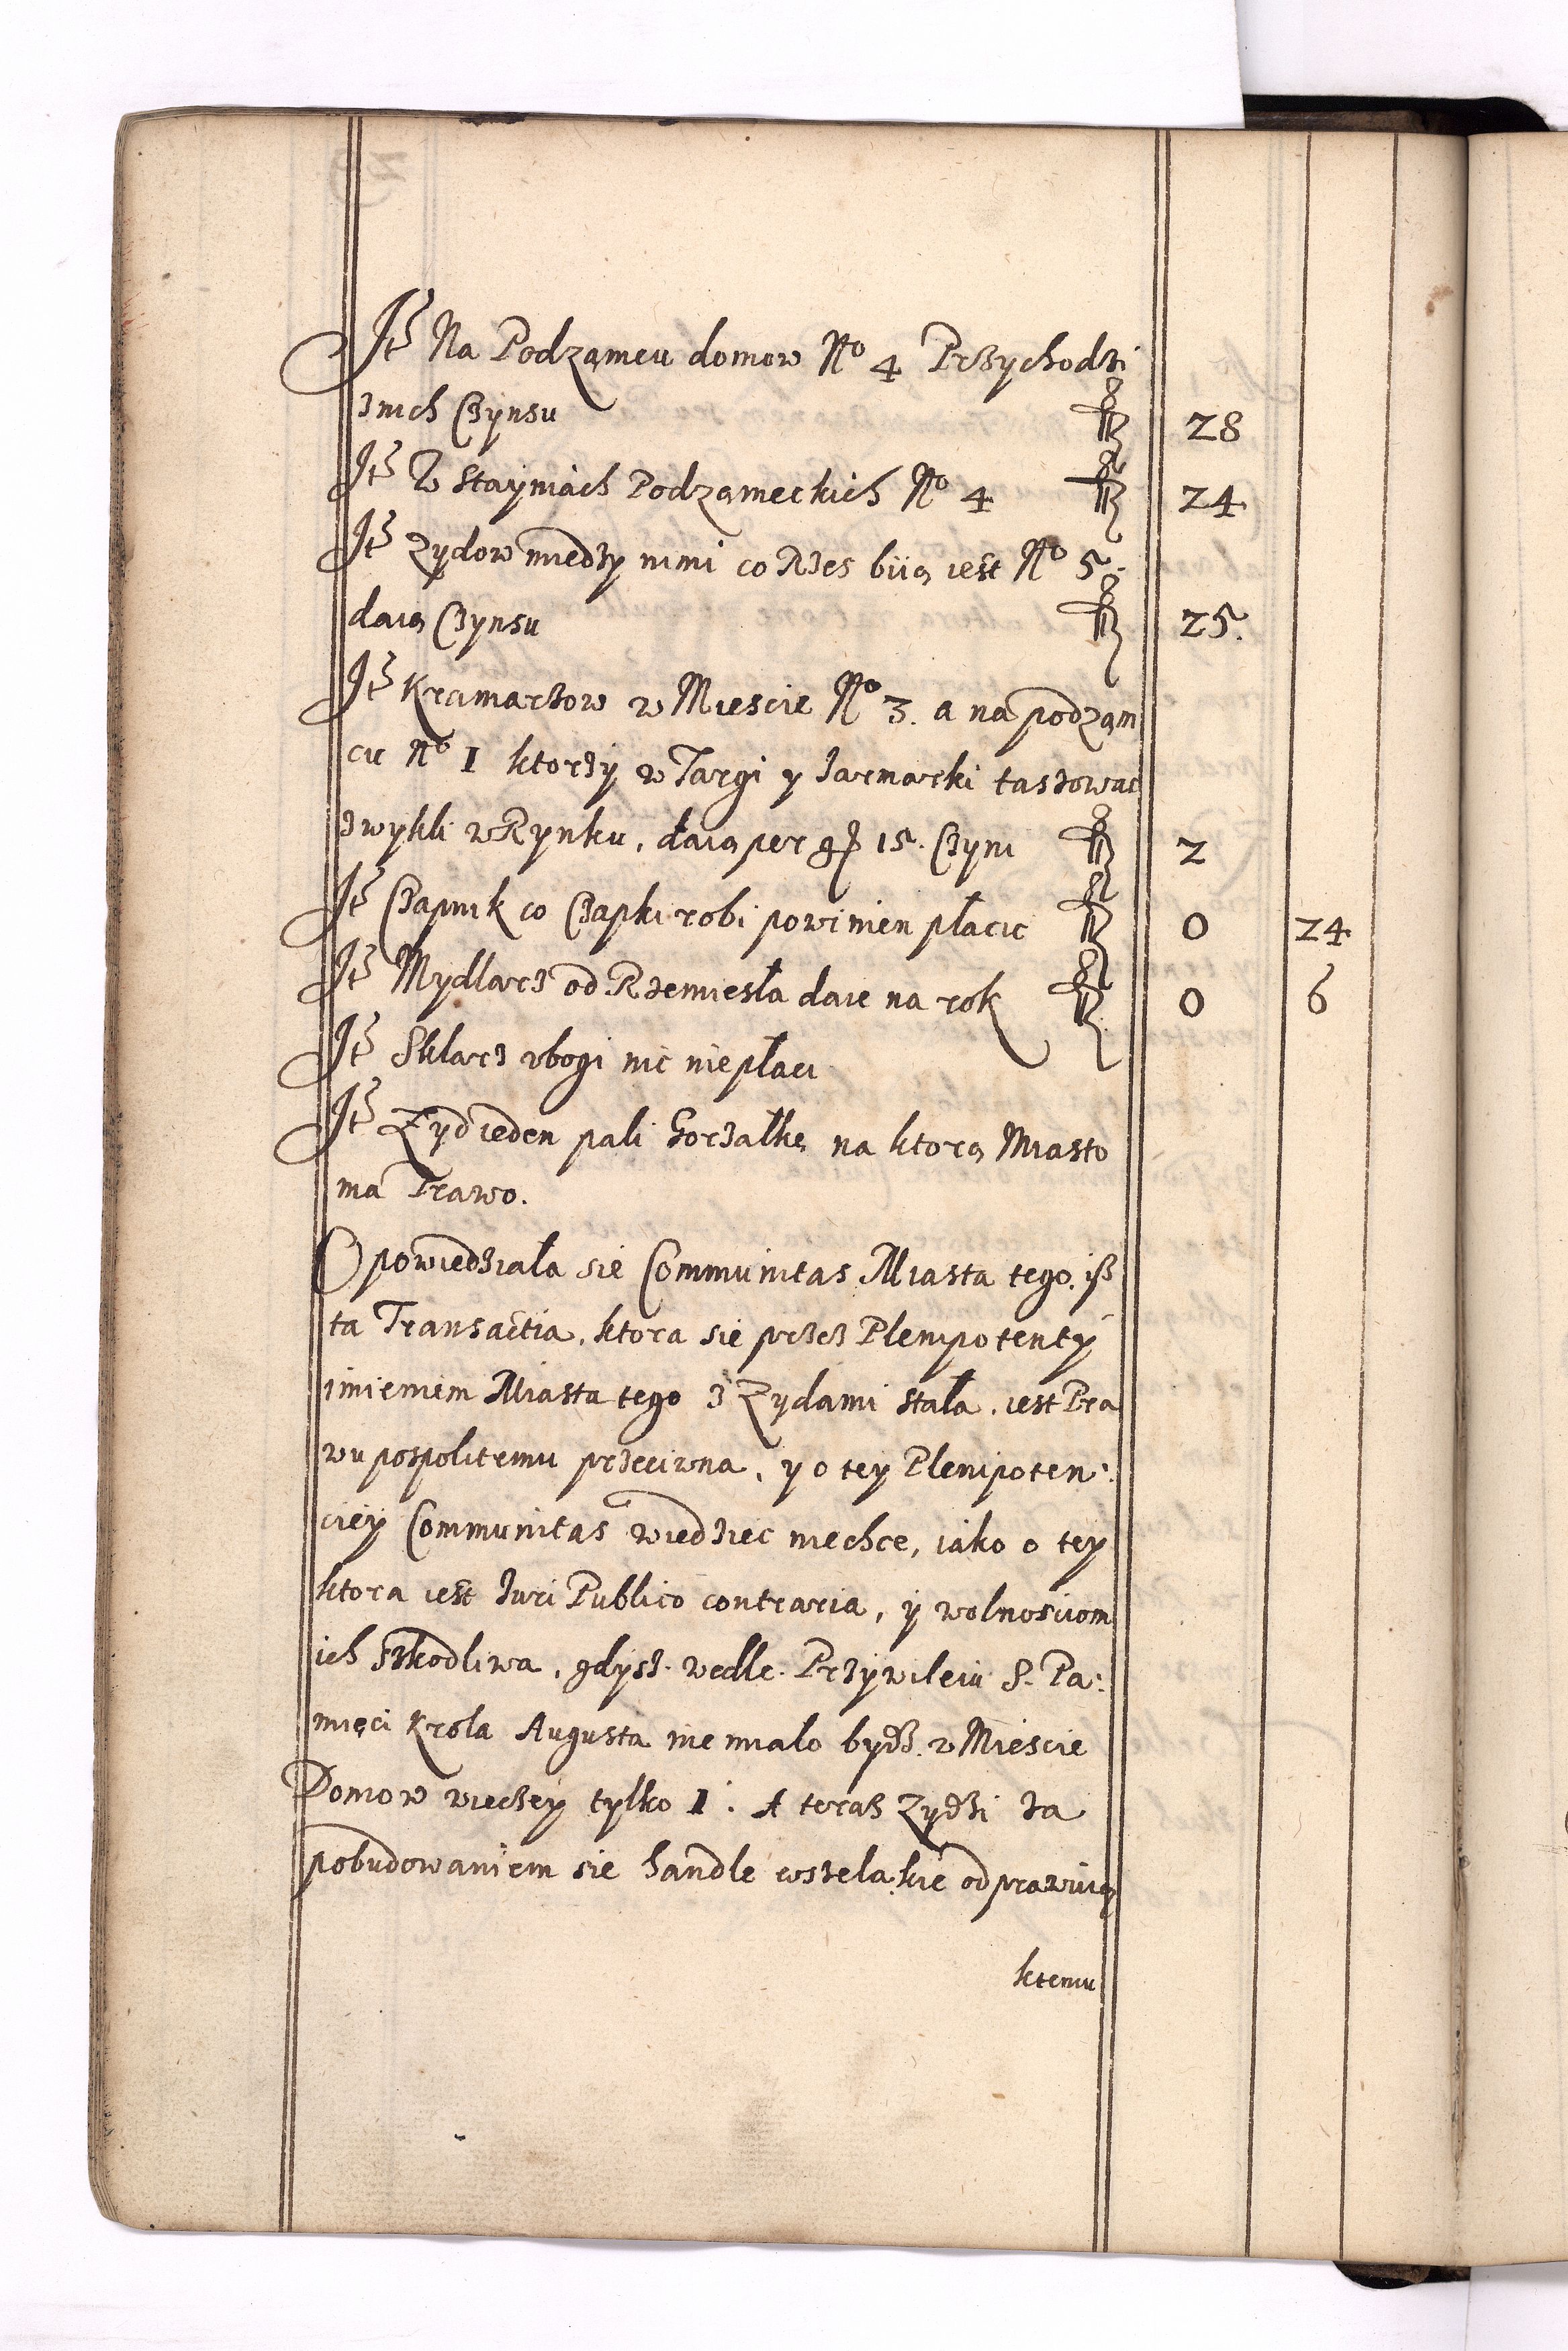 Itē Na Podzamcu domow No 4 Przychodzi
znich Czynsu fl 28
Itē W stayniach Podzameckich No 4 fl 24
Itē zydow miedzy nimi co Rzes biią iest No 5.
daią Czynsu fl 25.
Itē Kramarzow w Miescie No 3. a na podzam
cu No 1 ktorzy w Targi y Iarmarki taszowac
zwykli w Rynku, daią per gr 15. Czyni fl 2
Itē Czapnik co Czapki robi powinien płacic fl 0 24
Itē Mydlarz od Rzemiesła daie na rok fl 0 6
Itē Sklarz vbogi nic niepłaci
Itē Zyd ieden pali Gorzałkę na ktorą Miasto
ma Prawo.
Opowiedziała sie Communitas Miasta tego. iß
ta Transactia, ktora sie przez Plenipotenty
imieniem Miasta tego z Zydami stała, iest Pra
wu pospolitemu przeciwna, y o tey Plenipoten:
ciey Communitas wiedziec niechce, iako o tey
ktora iest Iuri Publico contraria, y wolnosciom
ich szkodliwa, gdysz wedle Przywileiu S. Pa:
mięci Krola Augusta nie miało bydz w Miescie
Domow wieczey tylko 1. A teraz zydzi za
pobudowaniem sie handle wszelakie odprawuią
ktemu